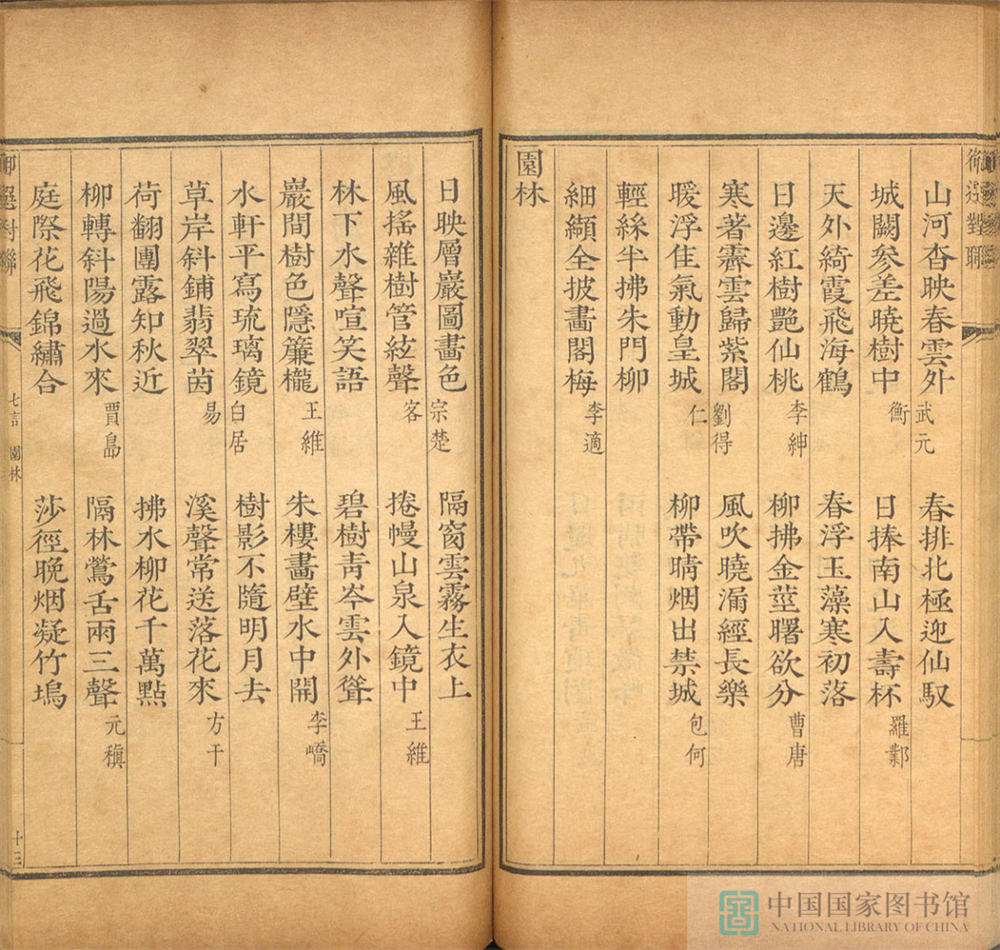 御選對聯
山河杳映春雲外 武元
春排北極迎仙馭
城闕參差曉樹中 衡
日捧南山入壽杯 羅鄴
天外綺霞飛海鶴
春浮玉藻寒初落
日邊紅樹艷仙桃 李紳
柳拂金莖曙欲分 曹唐
寒著霽雲歸紫閣 劉得
風吹曉漏經長樂
暖浮佳氣動皇城 仁
柳帶晴烟出禁城 包何
輕絲半拂朱門柳
細纈全披畫閣梅 李適
園林
日映層巖圖畫色 宗楚
隔窗雲霧生衣上
風搖雜樹管絃聲 客
捲幔山泉入鏡中 王維
林下水聲喧笑語
碧樹青岑雲外聳
巖間樹色隱簾櫳 王維
朱樓畫壁水中開 李嶠
水軒平寫琉璃鏡 白居
樹影不隨明月去
草岸斜鋪翡翠茵 易
溪聲常送落花來 方干
荷翻團露知秋近
拂水柳花千萬點
柳轉斜陽過水來 賈島
隔林鶯舌兩三聲 元稹
庭際花飛錦繡合
莎徑晚烟凝竹塢
御選對聯
七言 園林
十三
中国国家图书馆
NATIONAL LIBRARY OF CHINA